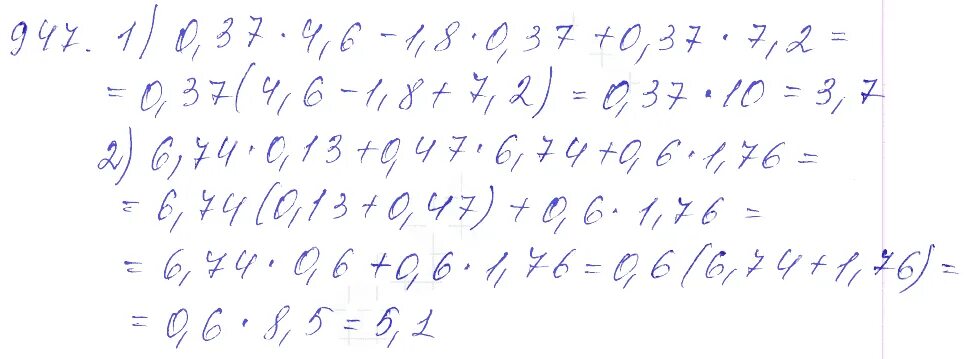 947. 1) 0,37 · 4,6 - 1,8 · 0,37 + 0,37 · 7,2 =
= 0,37(4,6 - 1,8 + 7,2) = 0,37 · 10 = 3,7
2) 6,74 · 0,13 + 0,47 · 6,74 + 0,6 · 1,76 =
= 6,74(0,13 + 0,47) + 0,6 · 1,76 =
= 6,74 · 0,6 + 0,6 · 1,76 = 0,6(6,74 + 1,76) =
= 0,6 · 8,5 = 5,1